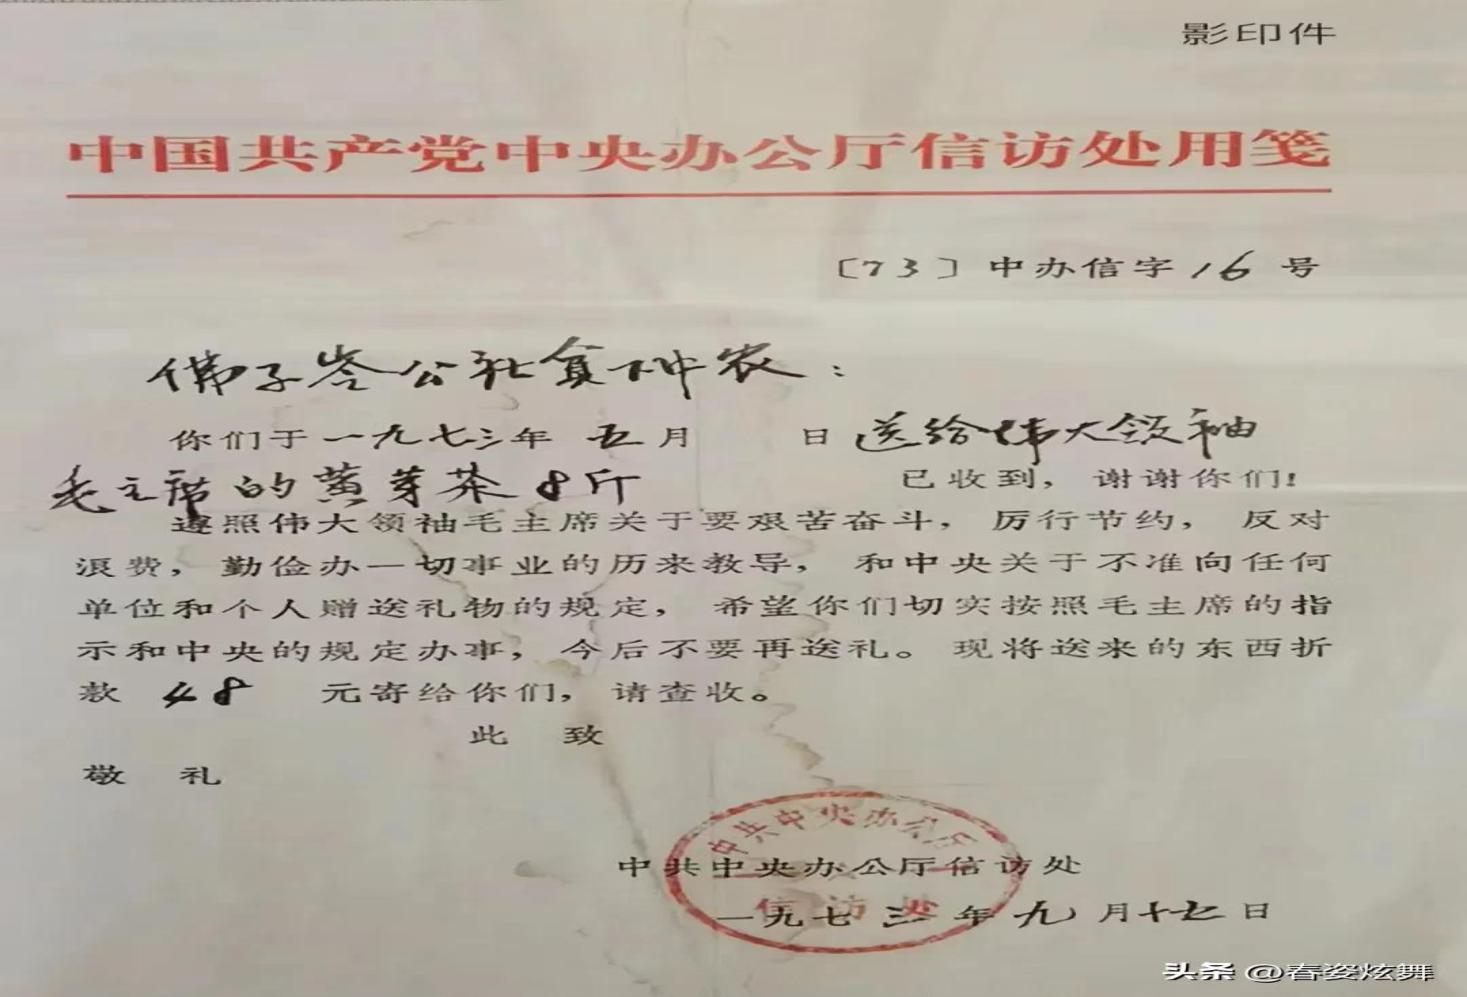 影印件
中国共产党中央办公厅信访处用笺
〔73〕中办信字16号
佛子岺公社貧下中农：
你们于一九七三年五月 日送给伟大领袖
毛主席的黄芽茶8斤 已收到，谢谢你们！
遵照伟大领袖毛主席关于要艰苦奋斗，厉行节约，反对
浪费，勤俭办一切事业的历来教导，和中央关于不准向任何
单位和个人赠送礼物的规定，希望你们切实按照毛主席的指
示和中央的规定办事，今后不要再送礼。现将送来的东西折
款 48 元寄给你们，请查收。
此 致
敬 礼
中共中央办公厅
中共中央办公厅信访处
信访处
一九七三年九月十七日
头条 @春姿炫舞